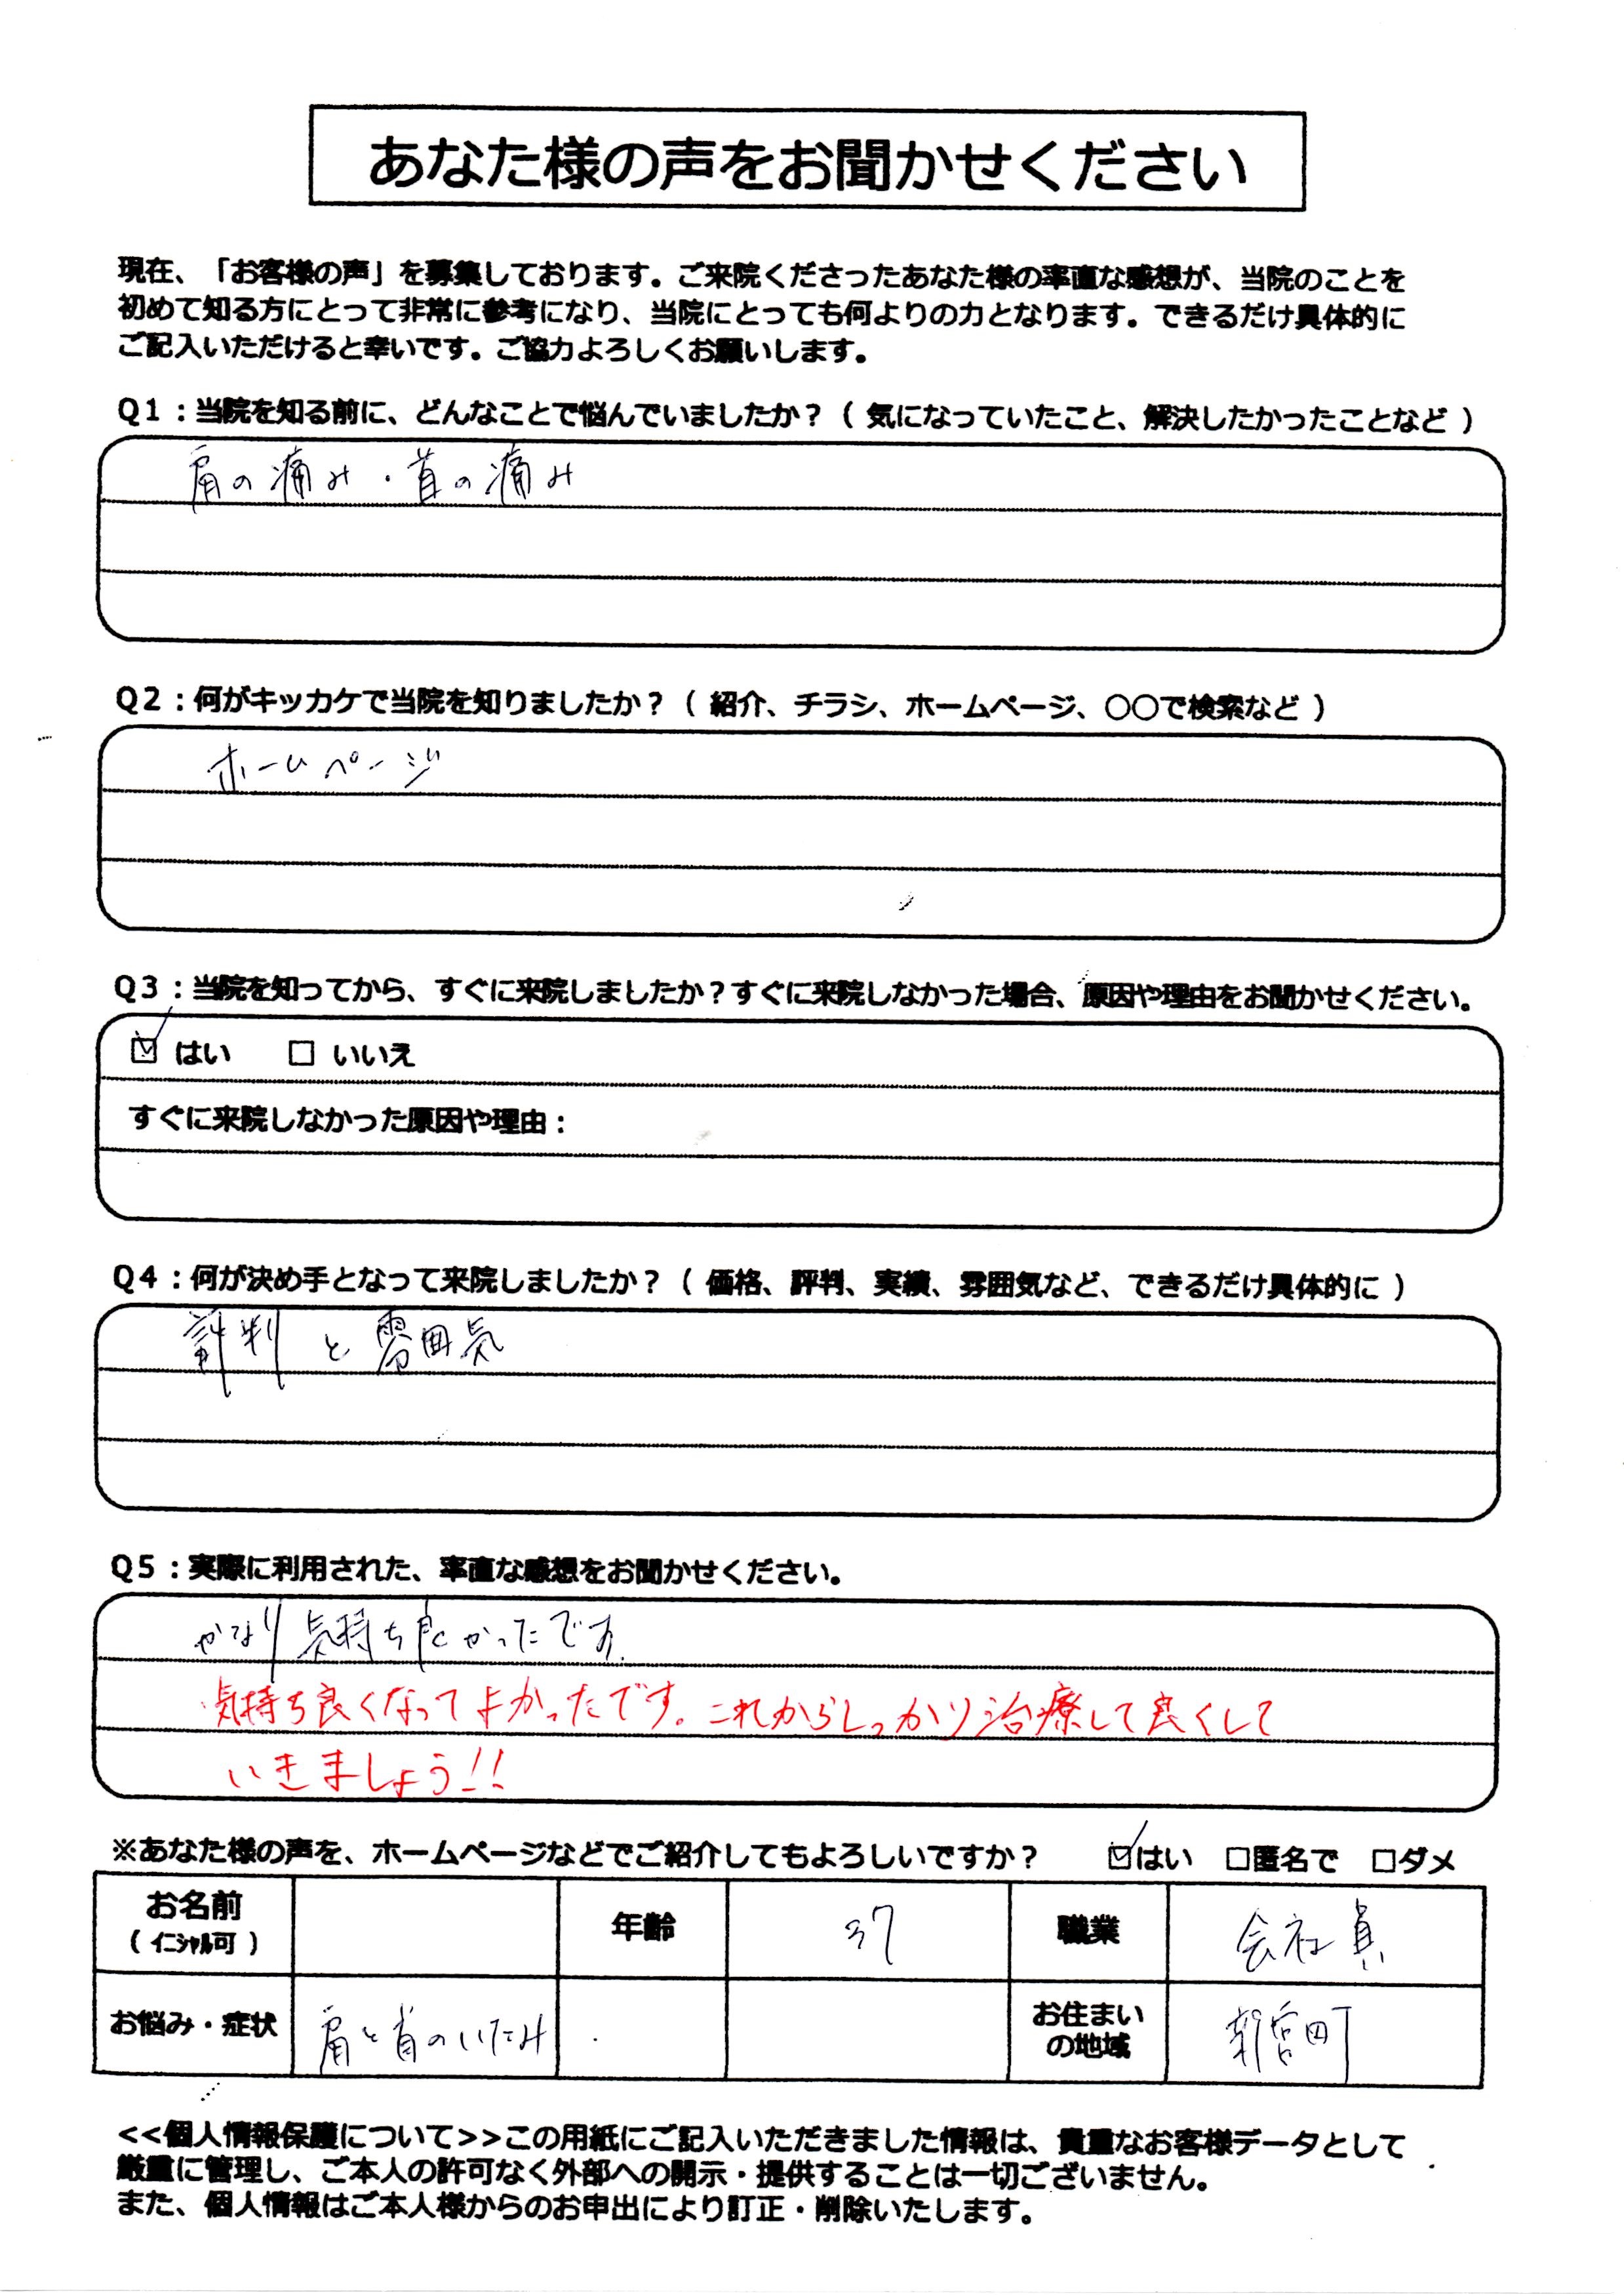 あなた様の声をお聞かせください
現在、「お客様の声」を募集しております。ご来院くださったあなた様の率直な感想が、当院のことを
初めて知る方にとって非常に参考になり、当院にとっても何よりの力となります。できるだけ具体的に
ご記入いただけると幸いです。ご協力よろしくお願いします。
Q1：当院を知る前に、どんなことで悩んでいましたか？（ 気になっていたこと、解決したかったことなど ）
肩の痛み・首の痛み
Q2：何がキッカケで当院を知りましたか？（ 紹介、チラシ、ホームページ、○○で検索など ）
ホームページ
Q3：当院を知ってから、すぐに来院しましたか？すぐに来院しなかった場合、原因や理由をお聞かせください。
☑ はい □ いいえ
すぐに来院しなかった原因や理由：
Q4：何が決め手となって来院しましたか？（ 価格、評判、実績、雰囲気など、できるだけ具体的に ）
評判 と 雰囲気
Q5：実際に利用された、率直な感想をお聞かせください。
かなり気持ち良かったです。
気持ち良くなってよかったです。これからしっかり治療して良くして
いきましょう!!
※あなた様の声を、ホームページなどでご紹介してもよろしいですか？ ☑はい □匿名で □ダメ
お名前 年齢 37 職業 会社員
（ イニシャル可 ）
お悩み・症状 肩と首のいたみ お住まいの地域 新宮町
<<個人情報保護について>>この用紙にご記入いただきました情報は、貴重なお客様データとして
厳重に管理し、ご本人の許可なく外部への開示・提供することは一切ございません。
また、個人情報はご本人様からのお申出により訂正・削除いたします。